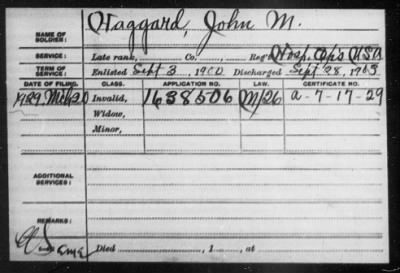 NAME OF SOLDIER: Haggard, John M.
SERVICE: Late rank, Co., Reg't Hosp. Cps USA
TERM OF SERVICE: Enlisted Sept 3, 1900 Discharged Sept 28, 1903
DATE OF FILING. CLASS. APPLICATION NO. LAW. CERTIFICATE NO.
1929 Invalid, 1638506 M/26 a-7-17-29
Widow,
Minor,
ADDITIONAL SERVICES:
REMARKS:
Died , 1 , at